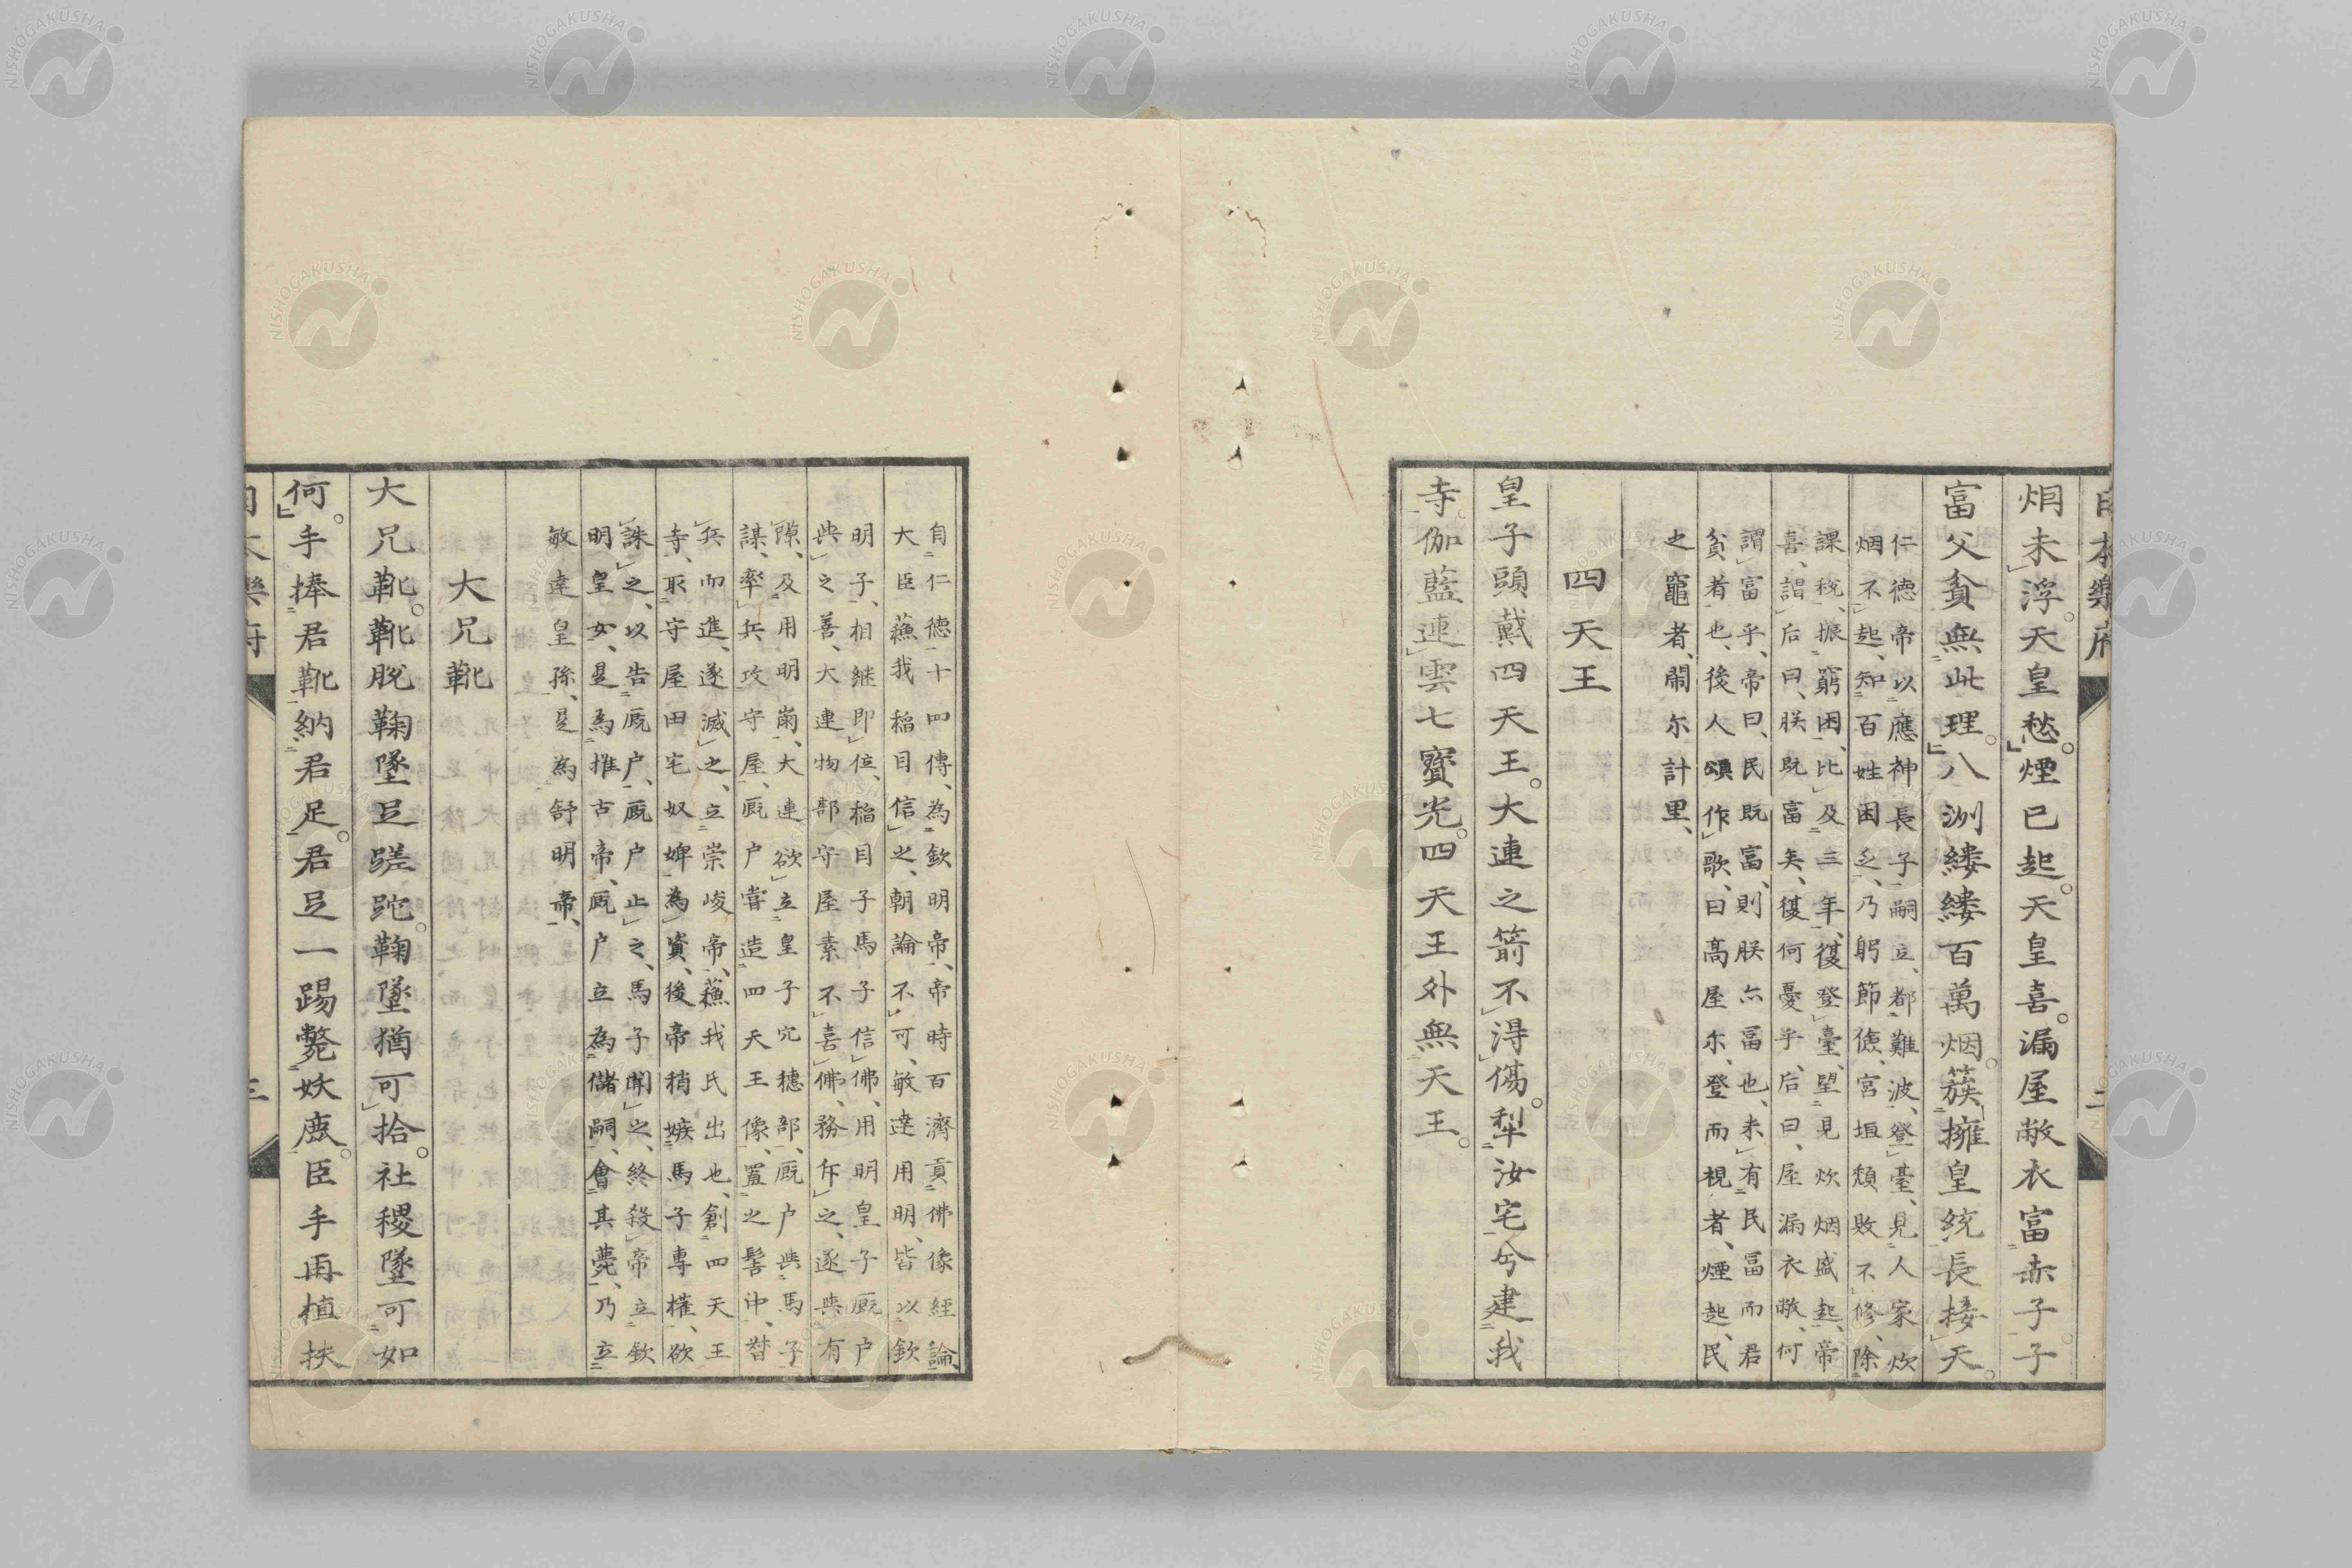 日本樂府
烟未浮。天皇愁。煙已起。天皇喜。漏屋敝衣富赤子。子
富父貧無此理。八洲縷縷百萬烟。簇擁皇統長接天。
仁德帝以應神長子嗣立、都難波、登臺、見人家炊
烟不起、知百姓困乏、乃躬節儉、宮垣頹敗不修、除
課稅、振窮困、比及三年、復登臺、望見炊烟盛起、帝
喜、謂后曰、朕既富矣、復何憂乎、后曰、屋漏衣敝、何
謂富乎、帝曰、民既富、則朕亦富也、未有民富而君
貧者也、後人頌作歌、曰高屋尓、登而視者、煙起、民
之竈者、閙尓計里、
四天王
皇子頭戴四天王。大連之箭不得傷。犁汝宅兮建我
寺。伽藍連雲七寶光。四天王外無天王。
自仁德十四傳、為欽明帝、帝時百濟貢佛像經論、
大臣蘓我稲目信之、朝論不可、敏達用明、皆以欽
明子、相継即位、稲目子馬子信佛、用明皇子厩户
與之善、大連物部守屋素不喜佛、務斥之、遂與有
隙、及用明崩、大連欲立皇子穴穗部、厩户與馬子
謀、率兵攻守屋、厩户嘗造四天王像、置之髻中、督
兵而進、遂滅之、立崇峻帝、蘓我氏出也、創四天王
寺、取守屋田宅奴婢為資、後帝稍嫉馬子專權、欲
誅之、以告厩户、厩户止之、馬子聞之、終殺帝立欽
明皇女、是為推古帝、厩户立為儲嗣、會其薨、乃立
敏達皇孫、是為舒明帝、
大兄靴
大兄靴。靴脫鞠墜足蹉跎。鞠墜猶可拾。社稷墜可如
何。手捧君靴納君足。君足一踢斃妖鹿。臣手再植扶
日本樂府
三